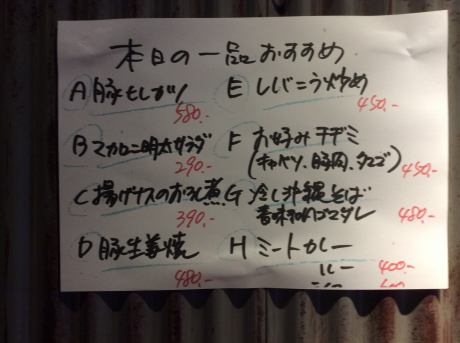 本日の一品おすすめ
A 豚もしガリ
580.-
B マカロニ明太サラダ
290.-
C 揚げナスのおろし煮
390.-
D 豚生姜焼
480.-
E レバニラ炒め
450.-
F お好みチヂミ
(キャベツ、豚肉、タマゴ)
450.-
G 冷し沖縄そば
香味和風ゴマダレ
480.-
H ミートカレー
400.-
ルー